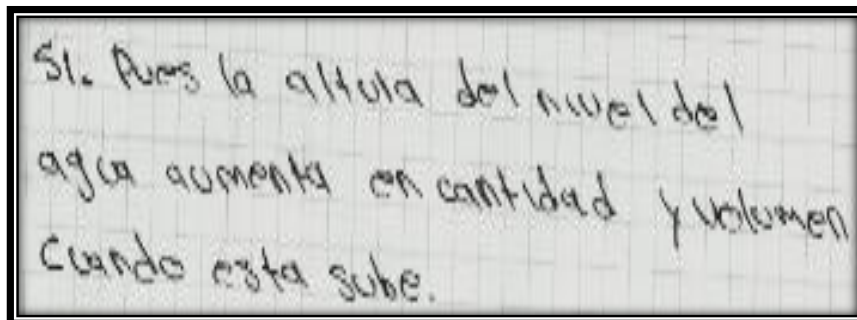 SI. Pues la altula del nivel del
agua aumenta en cantidad y volumen
cuando esta sube.